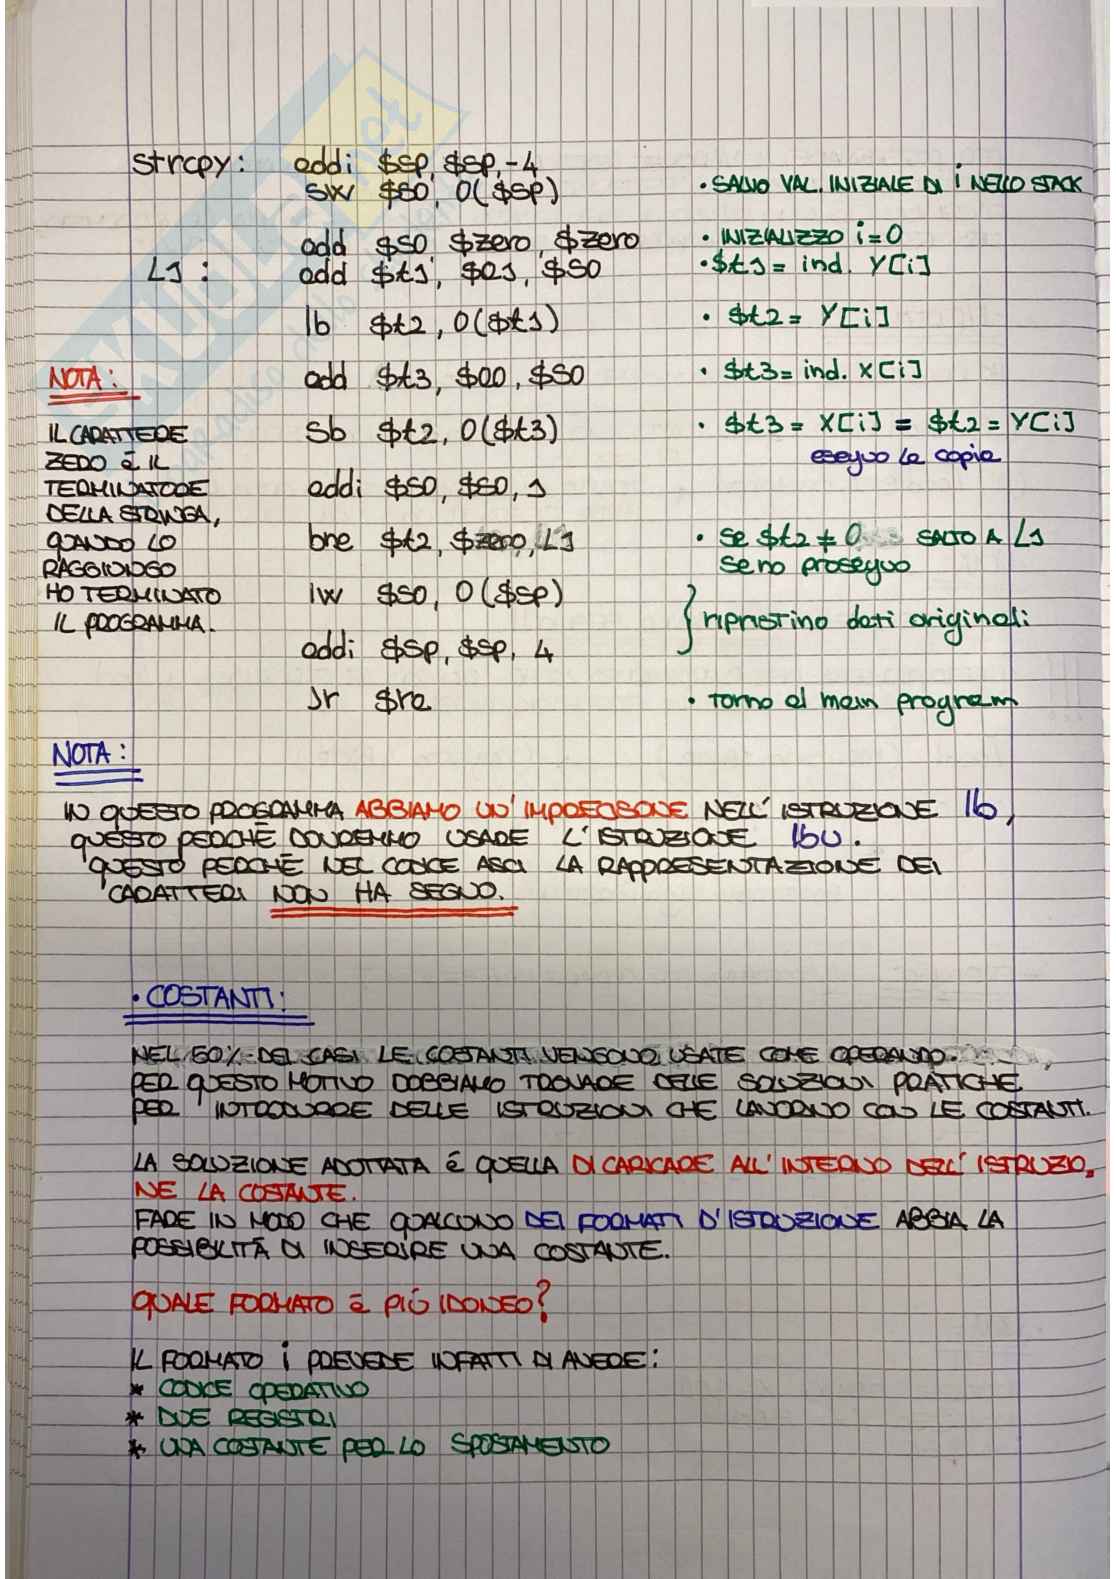 strcpy: addi $sp, $sp, -4
sw $s0, 0($sp) • SALVO VAL. INIZIALE DI i NELLO STACK
add $s0, $zero, $zero • INIZIALIZZO i=0
L1: add $t1, $a1, $s0 • $t1 = ind. Y[i]
lb $t2, 0($t1) • $t2 = Y[i]
add $t3, $a0, $s0 • $t3 = ind. X[i]
sb $t2, 0($t3) • $t3 = X[i] = $t2 = Y[i]
eseguo la copia
addi $s0, $s0, 1
bne $t2, $zero, L1 • se $t2 ≠ 0 SALTO A L1
se no proseguo
lw $s0, 0($sp)
addi $sp, $sp, 4
} ripristino dati originali
Jr $ra • Torno al main program
NOTA:
IL CARATTERE
ZERO È IL
TERMINATORE
DELLA STRINGA,
QUANDO LO
RAGGIUNGO
HO TERMINATO
IL PROGRAMMA.
NOTA:
IN QUESTO PROGRAMMA ABBIAMO UN'IMPRECISONE NELL'ISTRUZIONE lb,
QUESTO PERCHÈ DOVREMMO USARE L'ISTRUZIONE lbU.
QUESTO PERCHÈ NEL CODICE ASCI LA RAPPRESENTAZIONE DEI
CARATTERI NON HA SEGNO.
• COSTANTI:
NEL 50% DEI CASI LE COSTANTI VENGONO USATE COME OPERANDO.
PER QUESTO MOTIVO DOBBIAMO TROVARE DELLE SOLUZIONI PRATICHE
PER INTRODURRE DELLE ISTRUZIONI CHE LAVORINO CON LE COSTANTI.
LA SOLUZIONE ADOTTATA È QUELLA DI CARICARE ALL'INTERNO DELL'ISTRUZIO_
NE LA COSTANTE.
FARE IN MODO CHE QUALCUNO DEI FORMATI D'ISTRUZIONE ABBIA LA
POSSIBILITÀ DI INSERIRE UNA COSTANTE.
QUALE FORMATO È PIÙ IDONEO?
IL FORMATO i PREVEDE INFATTI DI AVERE:
* CODICE OPERATIVO
* DUE REGISTRI
* UNA COSTANTE PER LO SPOSTAMENTO